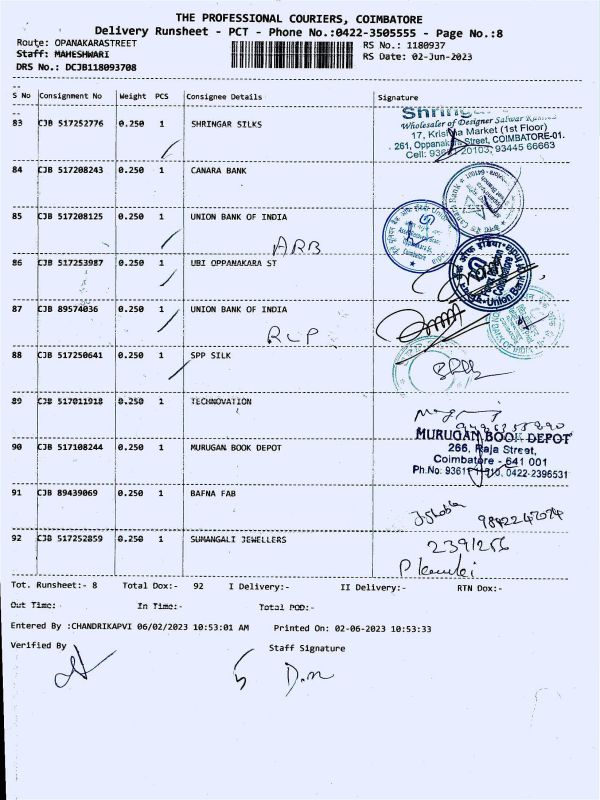 THE PROFESSIONAL COURIERS, COIMBATORE
Delivery Runsheet - PCT - Phone No.:0422-3505555 - Page No.:8
Route: OPANAKARASTREET
RS No.: 1180937
Staff: MAHESHWARI
RS Date: 02-Jun-2023
DRS No.: DCJB118093708
S No Consignment No Weight PCS Consignee Details Signature
83 CJB 517252776 0.250 1 SHRINGAR SILKS
Wholesaler of Designer Salwar
17, Krishna Market (1st Floor)
261, Oppanakara Street, COIMBATORE-01.
20103, 93445 66663
84 CJB 517208243 0.250 1 CANARA BANK
85 CJB 517208125 0.250 1 UNION BANK OF INDIA
ARB
86 CJB 517253987 0.250 1 UBI OPPANAKARA ST
87 CJB 89574036 0.250 1 UNION BANK OF INDIA
RLP
88 CJB 517250641 0.250 1 SPP SILK
89 CJB 517011918 0.250 1 TECHNOVATION
90 CJB 517108244 0.250 1 MURUGAN BOOK DEPOT
MURUGAN BOOK DEPOT
266, Raja Street,
Coimbatore - 641 001
0422-2396531
91 CJB 89439069 0.250 1 BAFNA FAB
92 CJB 517252859 0.250 1 SUMANGALI JEWELLERS
Tot. Runsheet:- 8 Total Dox:- 92 I Delivery:- II Delivery:- RTN Dox:-
Out Time: In Time:- Total POD:-
Entered By :CHANDRIKAPVI 06/02/2023 10:53:01 AM Printed On: 02-06-2023 10:53:33
Verified By Staff Signature